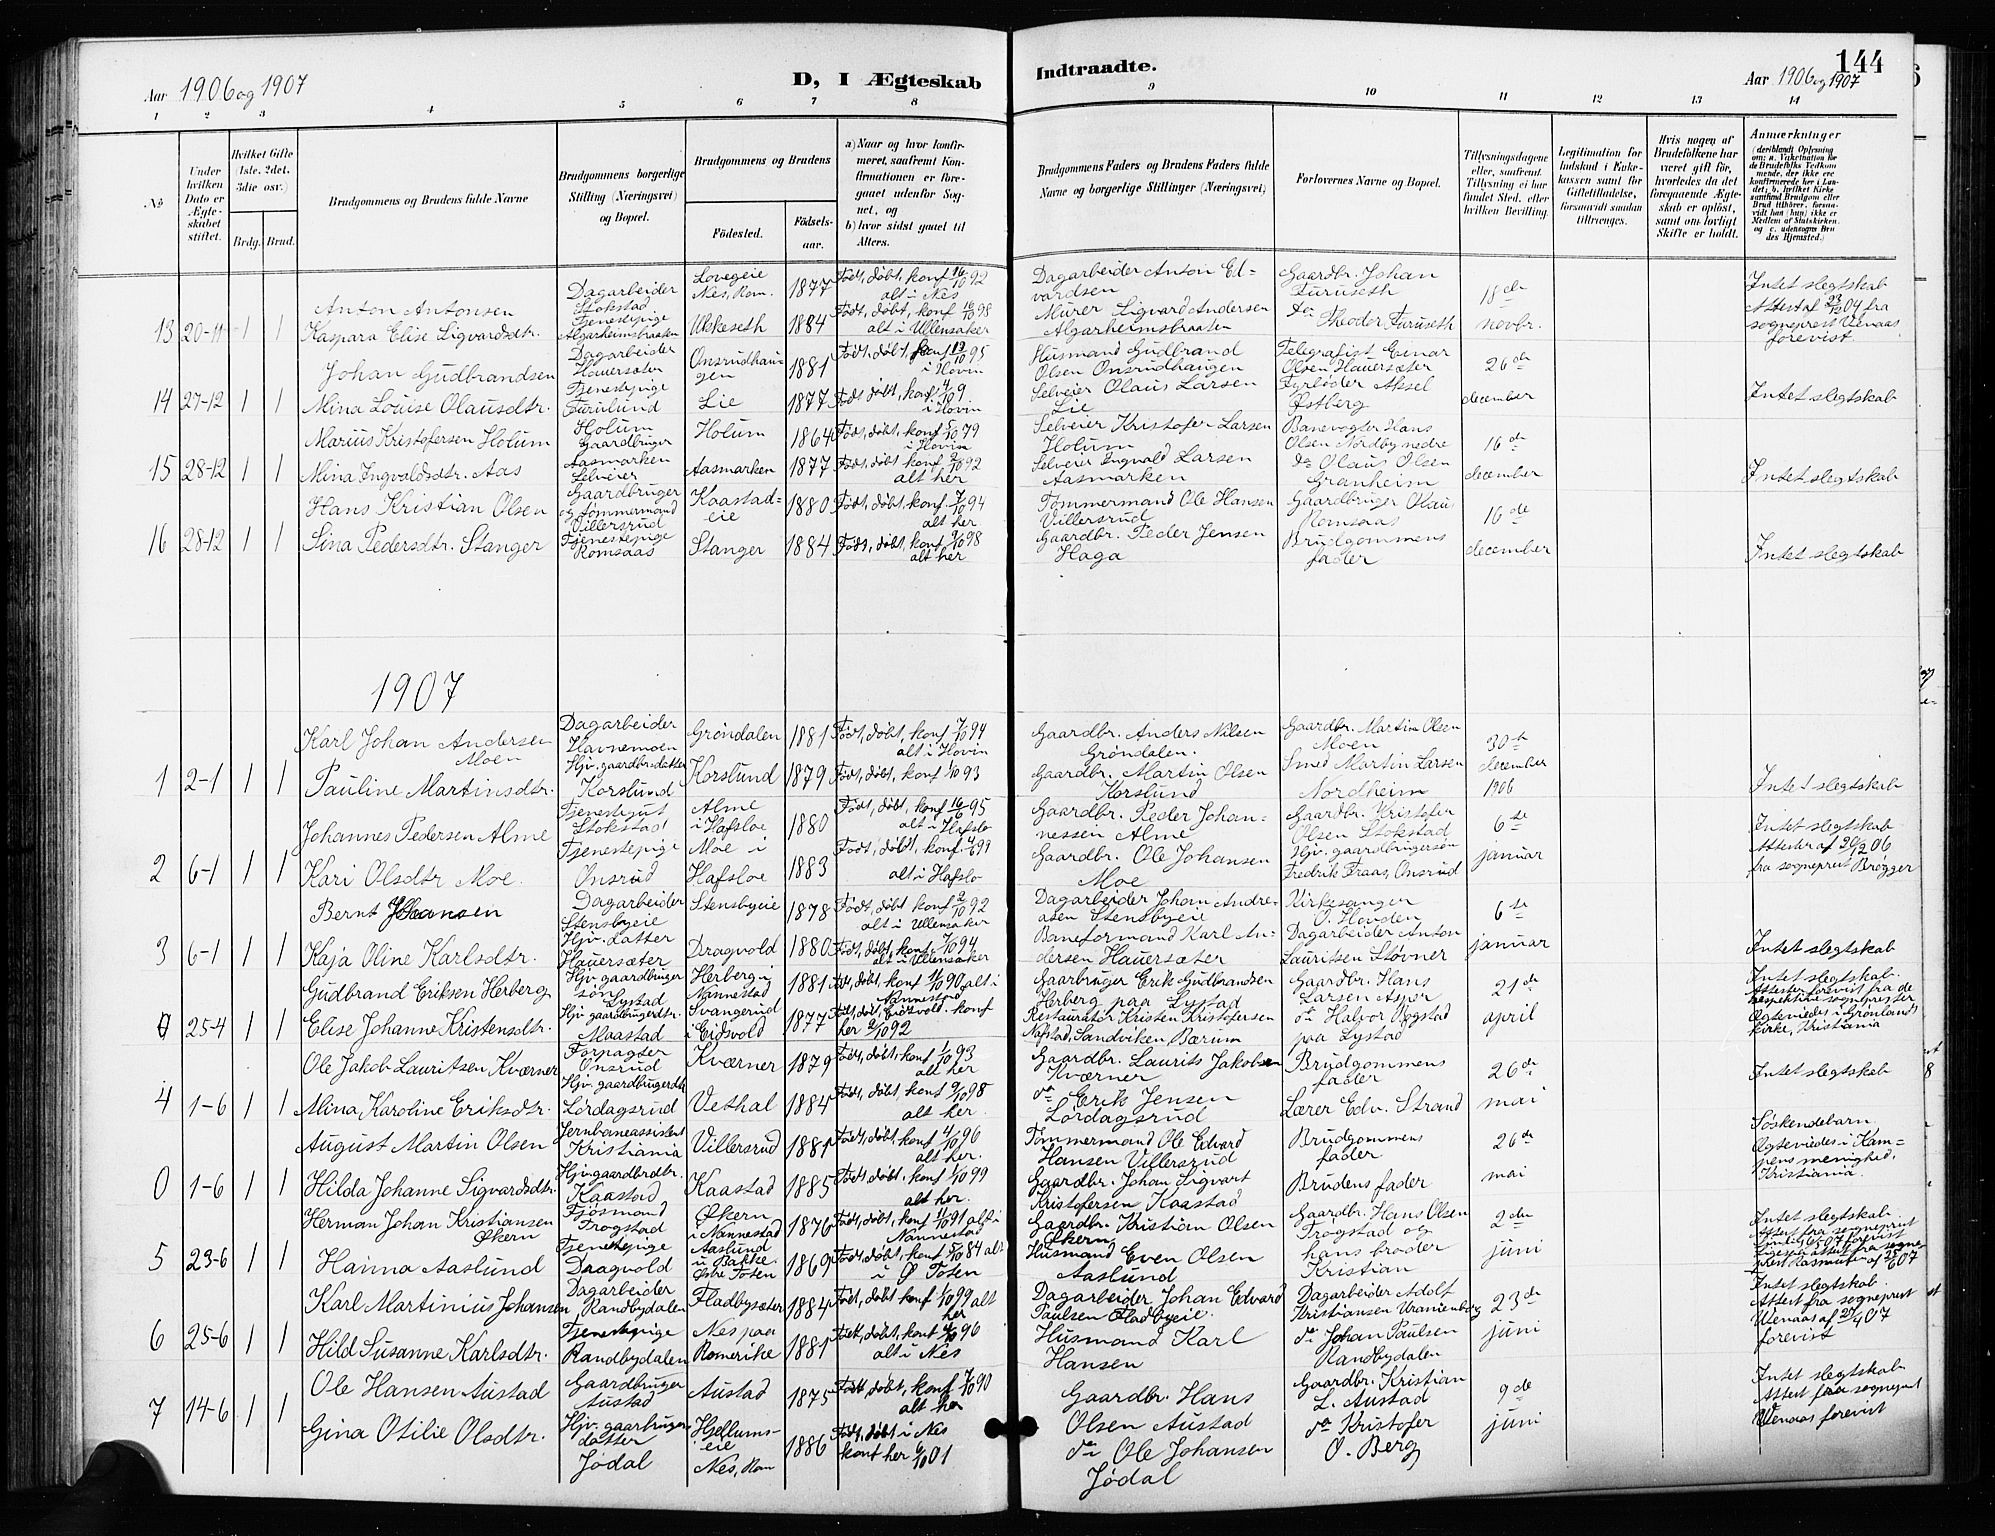 144
D, I Ægteskab Indtraadte.
Aar 1906 og 1907
Aar 1906 og 1907
1 2 3 4 5 6 7 8 9 10 11 12 13 14
No.
Under hvilken Dato er Ægteskabet stiftet.
Hvilket Gifte (1ste, 2det, 3die osv.)
Brdg. Brud.
Brudgommens og Brudens fulde Navne
Brudgommens borgerlige Stilling (Næringsvei) og Bopæl.
Brudgommens og Brudens
Fødested.
Fødselsaar.
a) Naar og hvor konfirmeret, saafremt Konfirmationen er foregaaet udenfor Sognet, og
b) hvor sidst gaaet til Alters.
Brudgommens Faders og Brudens Faders fulde Navne og borgerlige Stillinger (Næringsvei)
Forlovernes Navne og Bopæl.
Tillysningsdagene eller, saafremt Tillysning ei har fundet Sted, efter hvilken Bevilling.
Legitimation for Indskud i Enkekassen samt for Giftetilladelse, forsaavidt saadan tiltrænges.
Hvis nogen af Brudefolkene har været gift før, hvorledes da det foregaaende Ægteskab er opløst, samt om lovligt Skifte er holdt.
Anmærkninger
13 20-11 1 1 Anton Antonsen Dagarbeider Stokstad Lovegeie Nes, Rom. 1877 Født, døbt, konf 16/10 92 alt i Nes Dagarbeider Anton Edvardsen Gaardbr. Johan Furuseth 18de novbr. Intet slegtskab
Kaspara Elise Sigvardsdtr. Tjenestepige Algarheimsbraaten Ukkeseth 1884 Født, døbt, konf 16/10 98 alt i Ullensaker Murer Sigvard Andersen Algarheimsbraaten do Theodor Furuseth Attest af 23/10 04 fra sogneprest Utenaas forevist
14 27-12 1 1 Johan Gudbrandsen Dagarbeider Hauersæter Onsrudhaugen 1881 Født, døbt, konf 13/10 95 i Hovin Husmand Gudbrand Olsen Onsrudhaugen Telegrafist Einar Olsen Hauersæter 26de december
Mina Louise Olausdtr. Tjenestepige Furulund Lie 1877 Født, døbt, konf. i Hovin Selveier Olaus Larsen Lie Fyrbøder Aksel Østberg Intet slegtskab
15 28-12 1 1 Marius Kristofersen Holum Holum Gaardbruger Holum 1864 Født, døbt, konf 5/10 79 i Hovin Selveier Kristofer Larsen Holum Banevogter Hans Olsen Nordby nedre 16de december
Mina Ingvaldsdtr. Aas Aasmarken Selveier Aasmarken 1877 Født, døbt, konf 2/10 92 alt her Selveier Ingvald Larsen Aasmarken do Olaus Olsen Granheim Intet slegtskab
16 28-12 1 1 Hans Kristian Olsen Gaardbruger og Tømmermand Villersrud Kaastadeie 1880 Født, døbt, konf 7/10 94 alt her. Tømmermand Ole Hansen Villersrud Gaardbruger Olaus Romsaas 16de december
Sina Pedersdtr. Stanger Tjenestepige Romsaas Stanger 1884 Født, døbt, konf 9/10 98 alt her Gaardbr. Peder Jensen Haga Brudgommens fader Intet slegtskab
1907
1 2-1 1 1 Karl Johan Andersen Moen Dagarbeider Havnemoen Grøndalen 1881 Født, døbt, konf 7/10 94 alt i Hovin Gaardbr. Anders Nilsen Grøndalen. Gaardbr. Martin Olsen Moen 30te december 1906
Pauline Martinsdtr. Hjv. gaardbr.datter Korslund Korslund 1879 Født, døbt, konf 1/10 93 Gaardbr. Martin Olsen Korslund Smed Martin Larsen Nordheim Intet slegtskab
2 6-1 1 1 Johannes Pedersen Alme Tjenestegut Stokstad Alme i Hafslo 1880 Født, døbt, konf 16/6 95 alt i Hafslo Gaardbr. Peder Johannessen Alme Gaardbr. Kristofer Olsen Stokstad 6te januar Intet slegtskab
Kari Olsdtr Moe. Tjenestepige Onsrud Moe i Hafsloe 1883 Født, døbt, konf. 99 alt i Hafslo Gaardbr. Ole Johansen Moe Hjv. gaardbrugersøn Fredrik Fraas, Onsrud Attester af 20/12 06 fra sogneprest Brøgger
3 6-1 1 1 Bernt Johansen Dagarbeider Stensbyeie Stensbyeie 1878 Født, døbt, konf 2/10 92 alt i Ullensaker Dagarbeider Johan Andreasen Stensbyeie Kirkesanger O. Honden 6te januar
Kaja Oline Karlsdtr. Hjv. datter Hauersæter Dragvold 1880 Født, døbt, konf 7/10 94 alt i Ullensaker Baneformand Karl Andersen Hauersæter Dagarbeider Anton Lauritsen Støvner Intet slegtskab
0 25-4 1 1 Gudbrand Eriksen Herberg Hjv. gaardbruger søn Lystad Herberg i Nannestad 1881 Født, døbt, konf 11/10 90, alt i Nannestad Gaarbruger Erik Gudbrandsen Herberg paa Lystad Gaardbr. Hans Larsen Aspør 21de april Intet slegtskab.
Elise Johanne Kristensdtr. Hjv gaardbrugerdtr. Maastad Svangerud i Eidsvold 1877 Født, døbt, Eidsvold. konf her 2/10 92 Restauratør Kristen Kristofersen Nafstad, Sandviken Bærum do Halvor Rogstad paa Lystad Attester forevist fra de respektive sogneprester Ægteviedes i Grønlands kirke, Kristiania
4 1-6 1 1 Ole Jakob Lauritsen Kværner Forpagter Onsrud Kværner 1879 Født, døbt, konf 1/10 93 alt her Gaardbr. Laurits Jakobsen Kværner Brudgommens fader 26de mai Intet slegtskab
Mina Karoline Eriksdtr. Hjv. gaardbrugerdtr Lørdagsrud Vethal 1884 Født, døbt, konf 9/10 98 alt her. do Erik Jensen Lørdagsrud Lærer Edv. Strand
0 1-6 1 1 August Martin Olsen Jernbaneassistent Kristiania Villersrud 1881 Født, døbt, konf 4/10 96 alt her. Tømmermand Ole Edvard Hansen Villersrud Brudgommens fader 26de mai Søskendebarn.
Hilda Johanne Sigvardsdtr. Hjv. gaardbrdtr. Kaastad Kaastad 1885 Født, døbt, konf 1/10 99 alt her. Gaardbr. Johan Sigvart Kristofersen Kaastad Brudens fader Ægteviedes i Kampens menighed, Kristiania.
5 23-6 1 1 Herman Johan Kristiansen Økern Fjøsmand Trogstad Økern i Nannestad 1876 Født, døbt, konf 11/10 91 alt i Nannestad Gaardbr. Kristian Olsen Økern Gaardbr. Hans Olsen Trogstad og 2den juni Intet slegtskab.
Hanna Aaslund Tjenestepige Draagvold Aaslund u Bakke Østre Toten 1869 Født, døbt, konf 5/10 84 alt i Ø Toten Husmand Even Olsen Aaslund hans broder Kristian
6 25-6 1 1 Karl Martinius Johansen Dagarbeider Randbydalen Fladbysæter 1884 Født, døbt konf 1/10 99 alt her Dagarbeider Johan Edvard Paulsen Fladbyeie. Dagarbeider Adolf Kristiansen Uranienborg 23de juni Intet slegtskab.
Hild Susanne Karlsdtr. Tjenestepige Randbydalen Nes paa Romerike 1881 Født, døbt, konf 4/10 96 alt i Nes Husmand Karl Hansen do Johan Paulsen Randbydalen Attest fra sogneprest Utenaas af 27/4 07 forevist
7 14-6 1 1 Ole Hansen Austad Gaardbruger Austad Austad 1875 Født, døbt, konf 7/10 90 alt her Gaardbr. Hans Olsen Austad Gaardbr. Kristian L. Austad 9de juni Intet slegtskab
Gina Otilie Olsdtr. Hjv. gaarbruger datter Jødal Hjellumseie Nes, Rom 1886 Født, døbt i Nes konf her 6/10 01 do Ole Johansen Jødal do Kristofer O. Berg Attest fra sogneprest Utenaas forevist